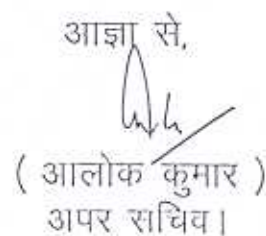 आज्ञा से,
( आलोक कुमार )
अपर सचिव।